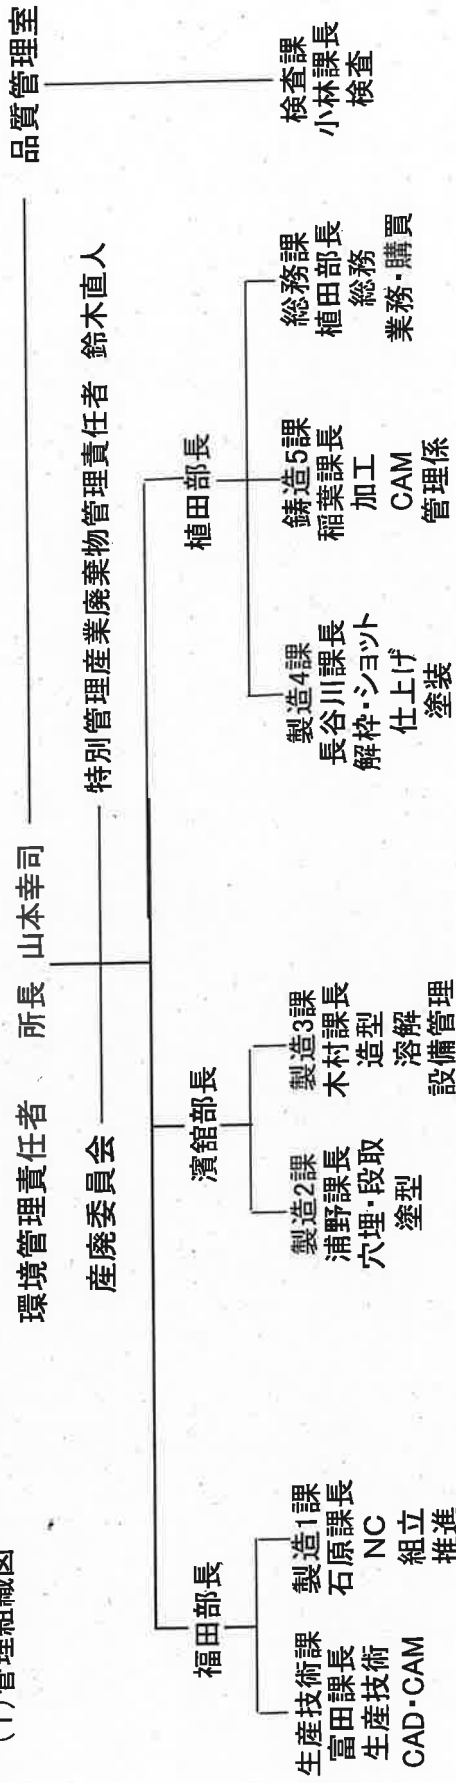 (1)管理組織図
環境管理責任者 所長 山本幸司
品質管理室
産廃委員会
特別管理産業廃棄物管理責任者 鈴木直人
福田部長
濱舘部長
植田部長
生産技術課
富田課長
生産技術
CAD・CAM
製造1課
石原課長
NC
組立
推進
製造2課
浦野課長
穴埋・段取
塗型
製造3課
木村課長
造型
溶解
設備管理
製造4課
長谷川課長
解枠・ショット
仕上げ
塗装
鋳造5課
稲葉課長
加工
CAM
管理係
総務課
植田部長
総務
業務・購買
検査課
小林課長
検査